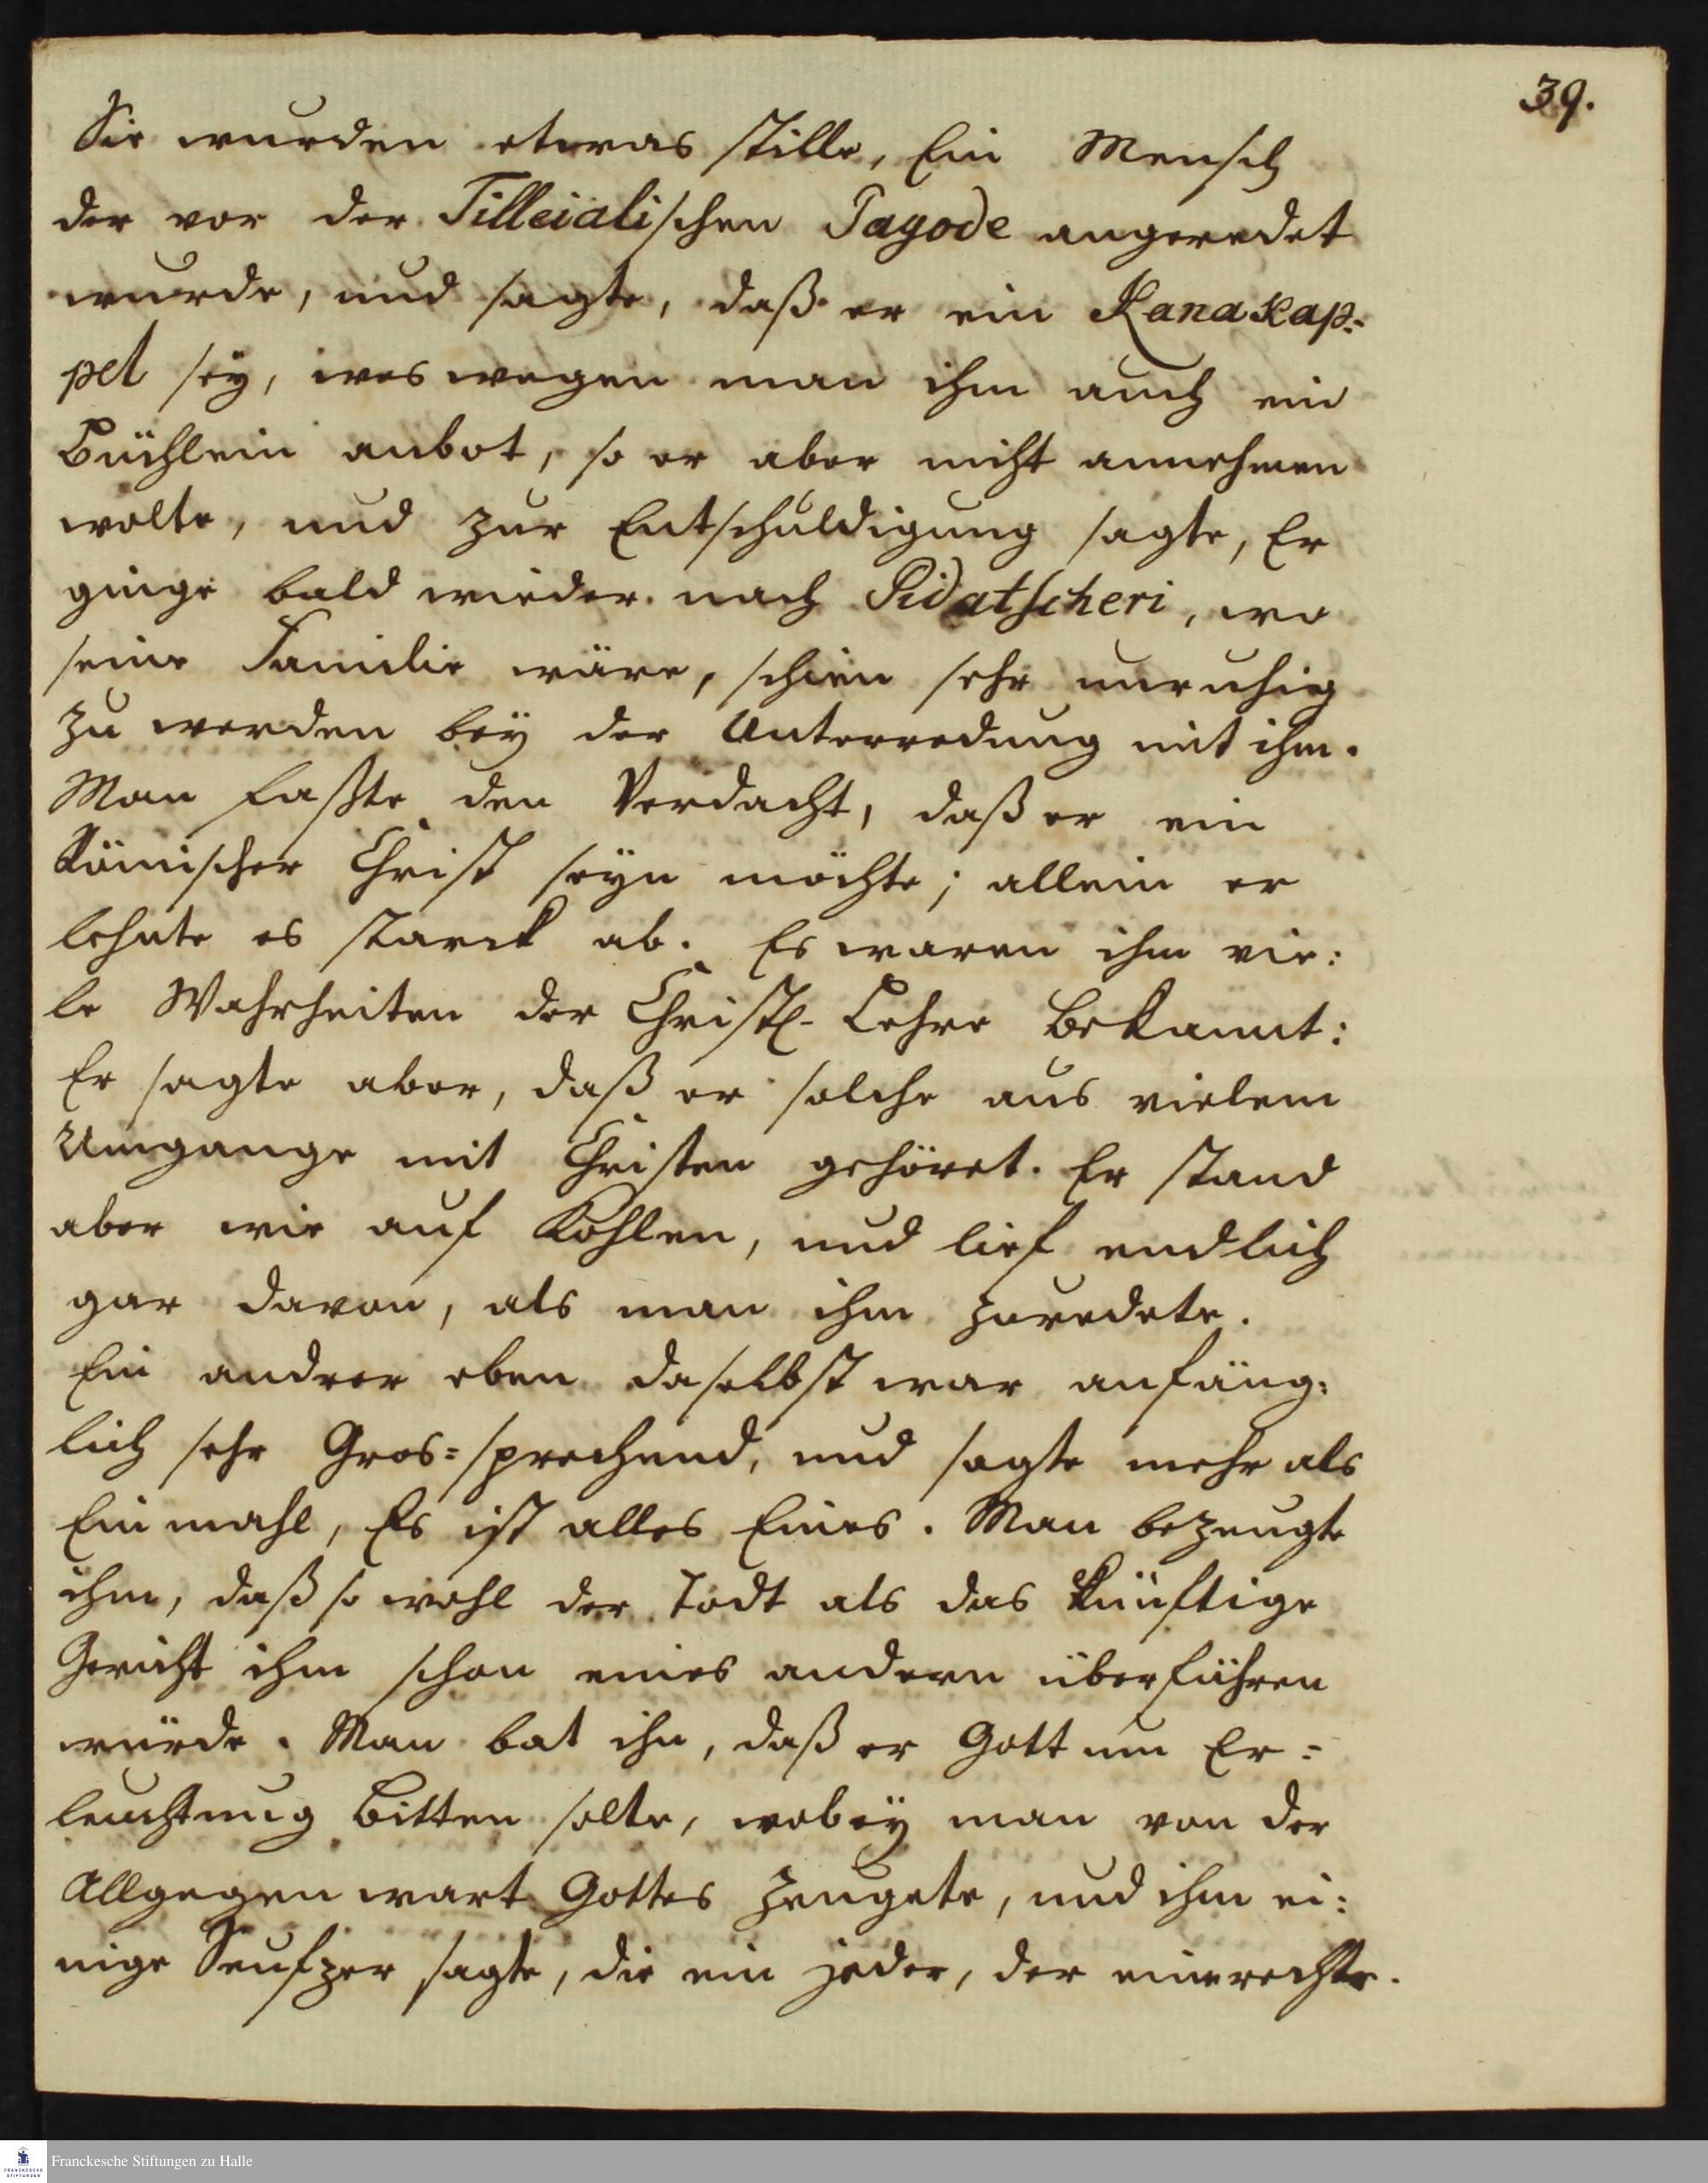 39.
Sie wurden etwas stille, Ein Mensch
der vor der Tilleialischen Pagode angeredet
wurde, und sagte, daß er ein Kanakap:
pel sey, weswegen man ihm auch ein
Büchlein anbot, so er aber nicht annehmen
wolte, und zur Entschuldigung sagte, Er
ginge bald wieder nach Pidatscheri, wo
seine Familie wäre, schien sehr unruhig
zu werden bey der Unterredung mit ihm.
Man faßte den Verdacht, daß er ein
Römischer Christ seyn möchte; allein er
lehnte es starck ab. Es waren ihm vie:
le Wahrheiten der Christl. Lehre bekannt:
Er sagte aber, daß er solche aus vielem
Umgange mit Christen gehöret. Er stand
aber wie auf Kohlen, und lief endlich
gar davon, als man ihm zuredete.
Ein andrer eben daselbst war anfäng:
lich sehr Gros=sprechend, und sagte mehr als
Einmahl, Es ist alles Eines. Man bezeugte
ihm, daß so wohl der Todt als das künftige
Gericht ihm schon eines andern überführen
würde. Man bat ihn, daß er Gott um Er=
leuchtung bitten solte, wobey man von der
Allgegenwart Gottes zeugete, und ihm ei:
nige Seufzer sagte, die ein jeder, der eine rechte
Franckesche Stiftungen zu Halle
FRANCKESCHE
STIFTUNGEN